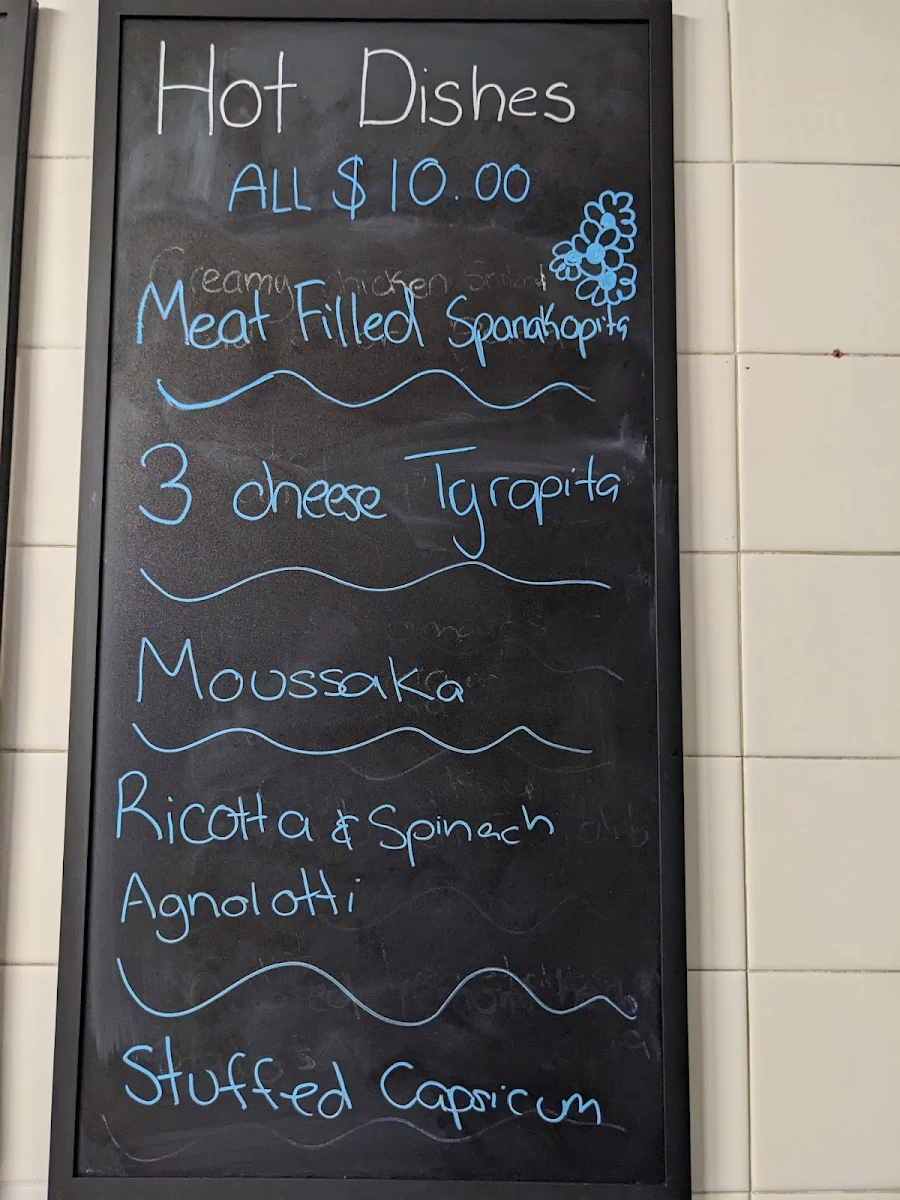 Hot Dishes
ALL $10.00
Creamy chicken
Meat Filled Spanakopita
3 cheese Tyropita
Moussaka
Ricotta & Spinach
Agnolotti
Stuffed Capsicum